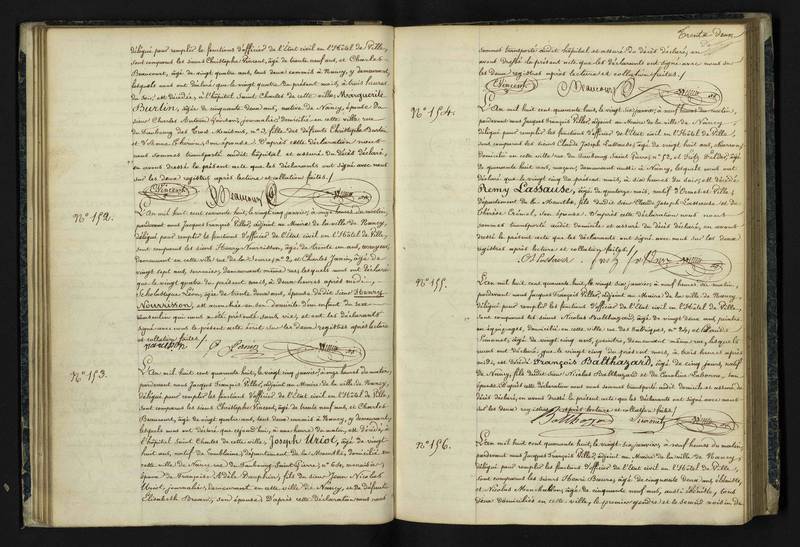 délégué pour remplir les fonctions d'officier de l'État civil en l'Hôtel de Ville,
sont comparus les sieurs Christophe Vincent, âgé de trente neuf ans, et Charles
Beaucourt, âgé de vingt quatre ans, tous deux commis à Nancy, y demeurant,
lesquels nous ont déclaré que le vingt quatre du présent mois, à trois heures
du soir, est décédée, à l'hôpital Saint Charles de cette ville, Marguerite
Burlin, âgée de cinquante deux ans, native de Nancy, épouse du
sieur Charles journalier, domicilié en cette ville, rue
du Faubourg des Trois Maisons, n° 3, fille des défunts Christophe Burlin
et d'Anne son épouse. D'après cette déclaration nous
nous sommes transporté audit hôpital et assuré du décès déclaré,
en avons dressé le présent acte que les déclarants ont signé avec nous
sur les deux registres après lecture et collation faites.
C. Vincent Beaucourt
N° 152.
L'An mil huit cent quarante huit, le vingt cinq janvier, à onze heures du matin,
pardevant nous Jacques François Piller, adjoint au Maire de la ville de Nancy,
délégué pour remplir les fonctions d'officier de l'État civil en l'Hôtel de Ville,
sont comparus les sieurs Henry Nourrisson, âgé de trente un ans,
demeurant en cette ville rue n° 2, et Charles Janin, âgé de
vingt sept ans, serrurier, demeurant même rue, lesquels nous ont déclaré
que le vingt quatre du présent mois, à deux heures après midi,
Scholastique âgée de trente deux ans, épouse dudit sieur Henry
Nourrisson, est accouchée en son domicile d'un enfant du sexe
masculin qui nous a été présenté sans vie, et ont les déclarants
signé avec nous le présent acte écrit sur les deux registres après lecture
et collation faites.
nourisson C. Janin
N° 153.
L'An mil huit cent quarante huit, le vingt cinq janvier, à onze heures du matin,
pardevant nous Jacques François Piller, adjoint au Maire de la ville de Nancy,
délégué pour remplir les fonctions d'officier de l'État civil en l'Hôtel de Ville,
sont comparus les sieurs Christophe Vincent, âgé de trente neuf ans, et Charles
Beaucourt, âgé de vingt quatre ans, tous deux commis à Nancy, y demeurant,
lesquels nous ont déclaré que cejourd'hui, à une heure du matin, est décédé, à
l'hôpital Saint Charles de cette ville, Joseph Uriot, âgé de vingt
huit ans, natif de département de la Meurthe, domicilié en
cette ville de Nancy rue du Faubourg Saint Pierre, n° menuisier,
époux de Françoise Adèle Dauphin, fils du sieur Jean Nicolas
Uriot, journalier, demeurant en cette ville de Nancy, et de défunte
Elisabeth son épouse. D'après cette déclaration nous nous
Trente-deux
sommes transporté audit hôpital et assuré du décès déclaré, en
avons dressé le présent acte que les déclarants ont signé avec nous sur
les deux registres après lecture et collation faites.
C. Vincent Beaucourt
N° 154.
L'An mil huit cent quarante huit, le vingt six janvier, à neuf heures du matin,
pardevant nous Jacques François Piller, adjoint au Maire de la ville de Nancy
délégué pour remplir les fonctions d'officier de l'État civil en l'Hôtel de Ville,
sont comparus les sieurs Claude Joseph Lassause, âgé de vingt huit ans, charron,
domicilié en cette ville rue du Faubourg Saint Pierre, n° 52, et âgé
de quarante huit ans, demeurant aussi à Nancy, lesquels nous ont
déclaré que le vingt cinq du présent mois, à dix heures du soir, est décédé
Remy Lassause, âgé de quatorze mois, natif d'
département de la Meurthe, fils dudit sieur Claude Joseph Lassause et de
Thérèse son épouse. D'après cette déclaration nous nous
sommes transporté audit domicile et assuré du décès déclaré, en avons
dressé le présent acte que les déclarants ont signé avec nous sur les deux
registres après lecture et collation faites.
N° 155.
L'An mil huit cent quarante huit, le vingt six janvier, à neuf heures du matin,
pardevant nous Jacques François Piller, adjoint au Maire de la ville de Nancy,
délégué pour remplir les fonctions d'officier de l'État civil en l'Hôtel de Ville,
sont comparus les sieurs Nicolas Balthazard, âgé de vingt deux ans, peintre
en équipages, domicilié en cette ville rue des Fabriques, n° 24, et
Simonet, âgé de vingt cinq ans, peintre, demeurant même rue, lesquels
nous ont déclaré, que le vingt cinq du présent mois, à trois heures après
midi, est décédé François Balthazard, âgé de cinq jours, natif
de Nancy, fils dudit sieur Nicolas Balthazard et de Caroline son
épouse. D'après cette déclaration nous nous sommes transporté audit domicile et assuré du
décès déclaré, en avons dressé le présent acte que les déclarants ont signé avec nous
sur les deux registres après lecture et collation faites.
Balthazar Simonet
N° 156.
L'An mil huit cent quarante huit, le vingt six janvier, à neuf heures du matin,
pardevant nous Jacques François Piller, adjoint au Maire de la ville de Nancy
délégué pour remplir les fonctions d'officier de l'État civil en l'Hôtel de Ville,
sont comparus les sieurs Henri âgé de cinquante deux ans,
et Nicolas âgé de cinquante neuf ans, aussi tous
deux domiciliés en cette ville, le premier gendre et le second voisin de